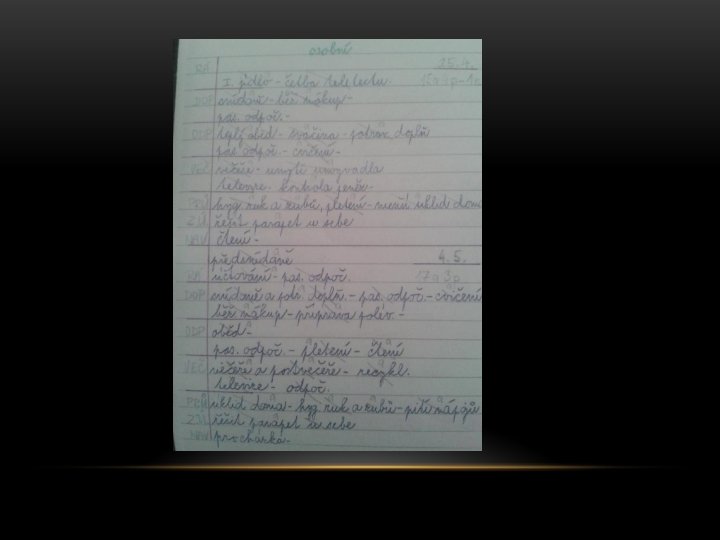 osobní
RÁ 25. 4.
I. jídlo - četba teletextu.
DOP snídaně - běž nákup -
pas. odpoč. -
ODP teplý oběd - svačina - potrav. doplň
pas odpoč. - cvičení -
VEČ večeře - umytí umyvadla
televize. kontrola peněz -
PRŮ hyg ruk a zubů, pletení - menší úklid doma
ZM řešit parapet u sebe
NAV čtení -
předsnídaně 4. 5.
RÁ účtování - pas. odpoč. 17 a 3p
DOP snídaně a potr. doplň. - pas. odpoč. - cvičení
běž nákup - příprava polév. -
ODP oběd -
pas. odpoč. - pletení - čtení
VEČ večeře a postvečeře - recykl.
televize - odpoč.
PRŮ úklid doma - hyg ruk a zubů - pití nápojů
ZM řešit parapet u sebe
NAV procházka -